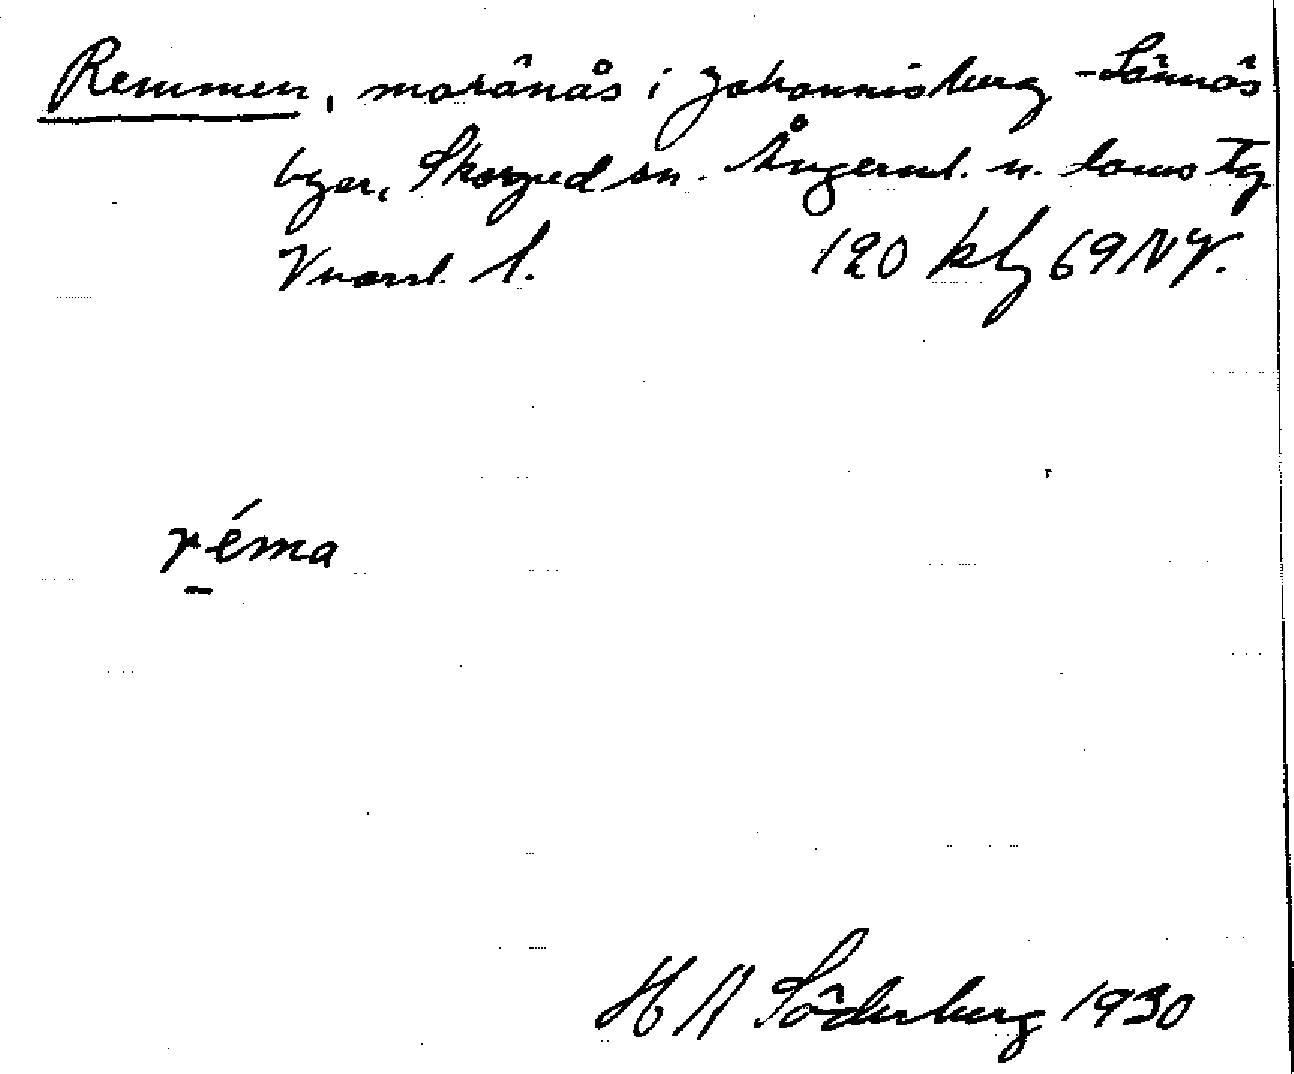 Remmen, moränås i Johannisberg - Sännås
byar, Skorped sn. Ångerml. n. doms Tg
Vnorrl. l. 120 kbg 69 NV.
réma
H A Söderberg 1930